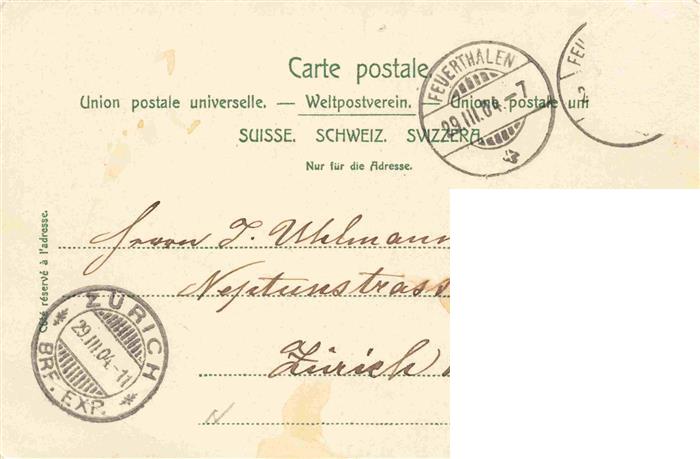 Carte postale.
Union postale universelle. — Weltpostverein. — Unione postale uni
SUISSE. SCHWEIZ. SVIZZERA.
Nur für die Adresse.
FEUERTHALEN
29.III.04.-7
FEU
Côté réservé à l'adresse.
Herrn J. Uhlmann
Neptunstrass
Zürich
ZÜRICH
29.III.04.-11
BRF. EXP.